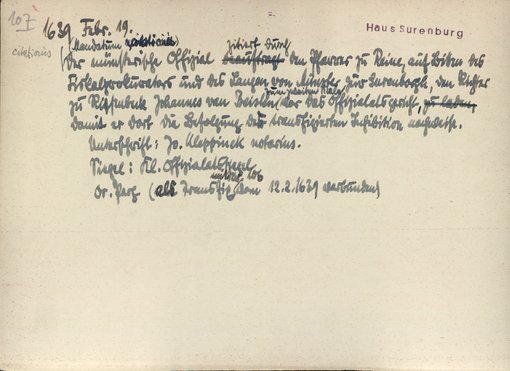 107
1639 Febr. 19.
Haus Surenburg
citatorius
(Mandatum citatorium)
Der münsterische Offizial beauftragt zitiert durch den Pfarrer zu Reine, auf Bitten des
Fiskalprokurators und des Lanzen von Münster zur Surenborgh, den Richter
zu Ribbenbeck Johannes von Beislen zum zweiten Male vor das Offizialatsgericht, zu laden,
damit er dort die Befolgung des transfigierten Inhibition nachweise.
Unterschrift: Jo. Kleppinck notarius.
Siegel: Kl. Offizialatssiegel
Or. Perg. (als Transfix mit Nr. 106 vom 12.2.1639 verbunden)